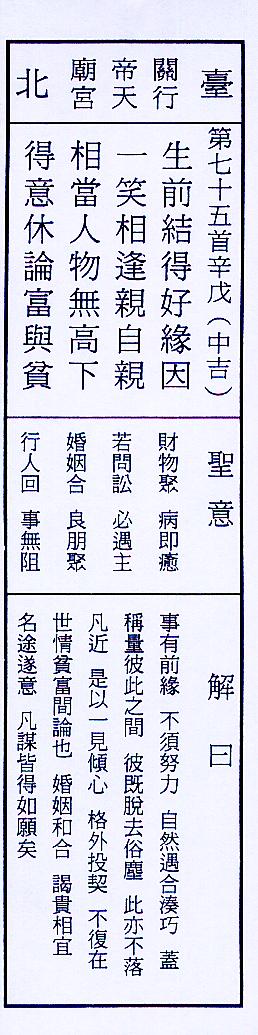 臺北
行天宮
關帝廟
第七十五首辛戊(中吉)
生前結得好緣因
一笑相逢親自親
相當人物無高下
得意休論富與貧
聖意
財物聚 病即癒
若問訟 必遇主
婚姻合 良朋聚
行人回 事無阻
解曰
事有前緣 不須努力 自然遇合湊巧 蓋
稱量彼此之間 彼既脫去俗塵 此亦不落
凡近 是以一見傾心 格外投契 不復在
世情貧富間論也 婚姻和合 謁貴相宜
名途遂意 凡謀皆得如願矣